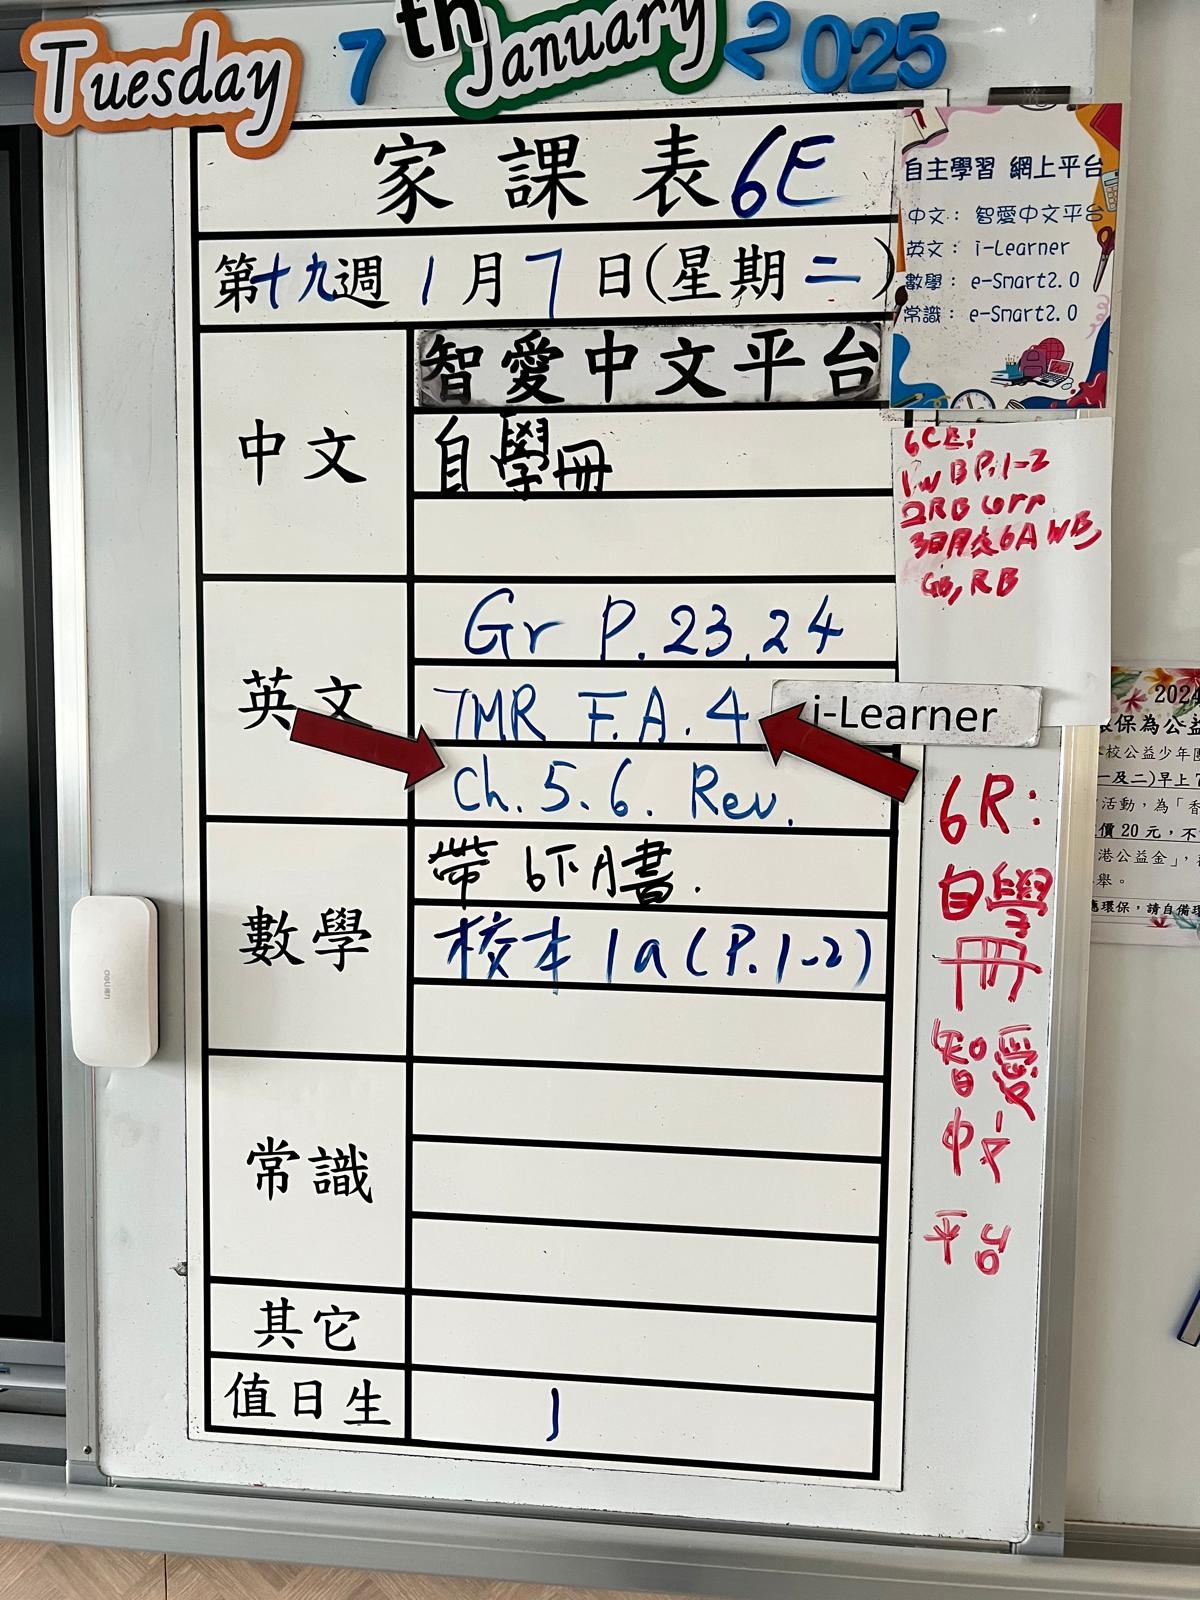 Tuesday 7th January 2025
家課表 6E
第十九週 1月7日(星期二)
中文
智愛中文平台
自學冊
英文
Gr P.23,24
TMR F.A.4
i-Learner
Ch.5.6. Rev.
數學
帶6下A書.
校本1a(P.1-2)
常識
其它
值日生
1
自主學習 網上平台
中文: 智愛中文平台
英文: i-Learner
數學: e-Smart2.0
常識: e-Smart2.0
6CE:
1WB P.1-2
2RB Corr
6A WB,
GB, RB
6R:
自學
冊
智愛
中文
平台
2024
環保為公益
校公益少年團
一及二)早上7
活動,為「香
價 20 元,不
港公益金」,
舉。
應環保,請自備環
deli得力